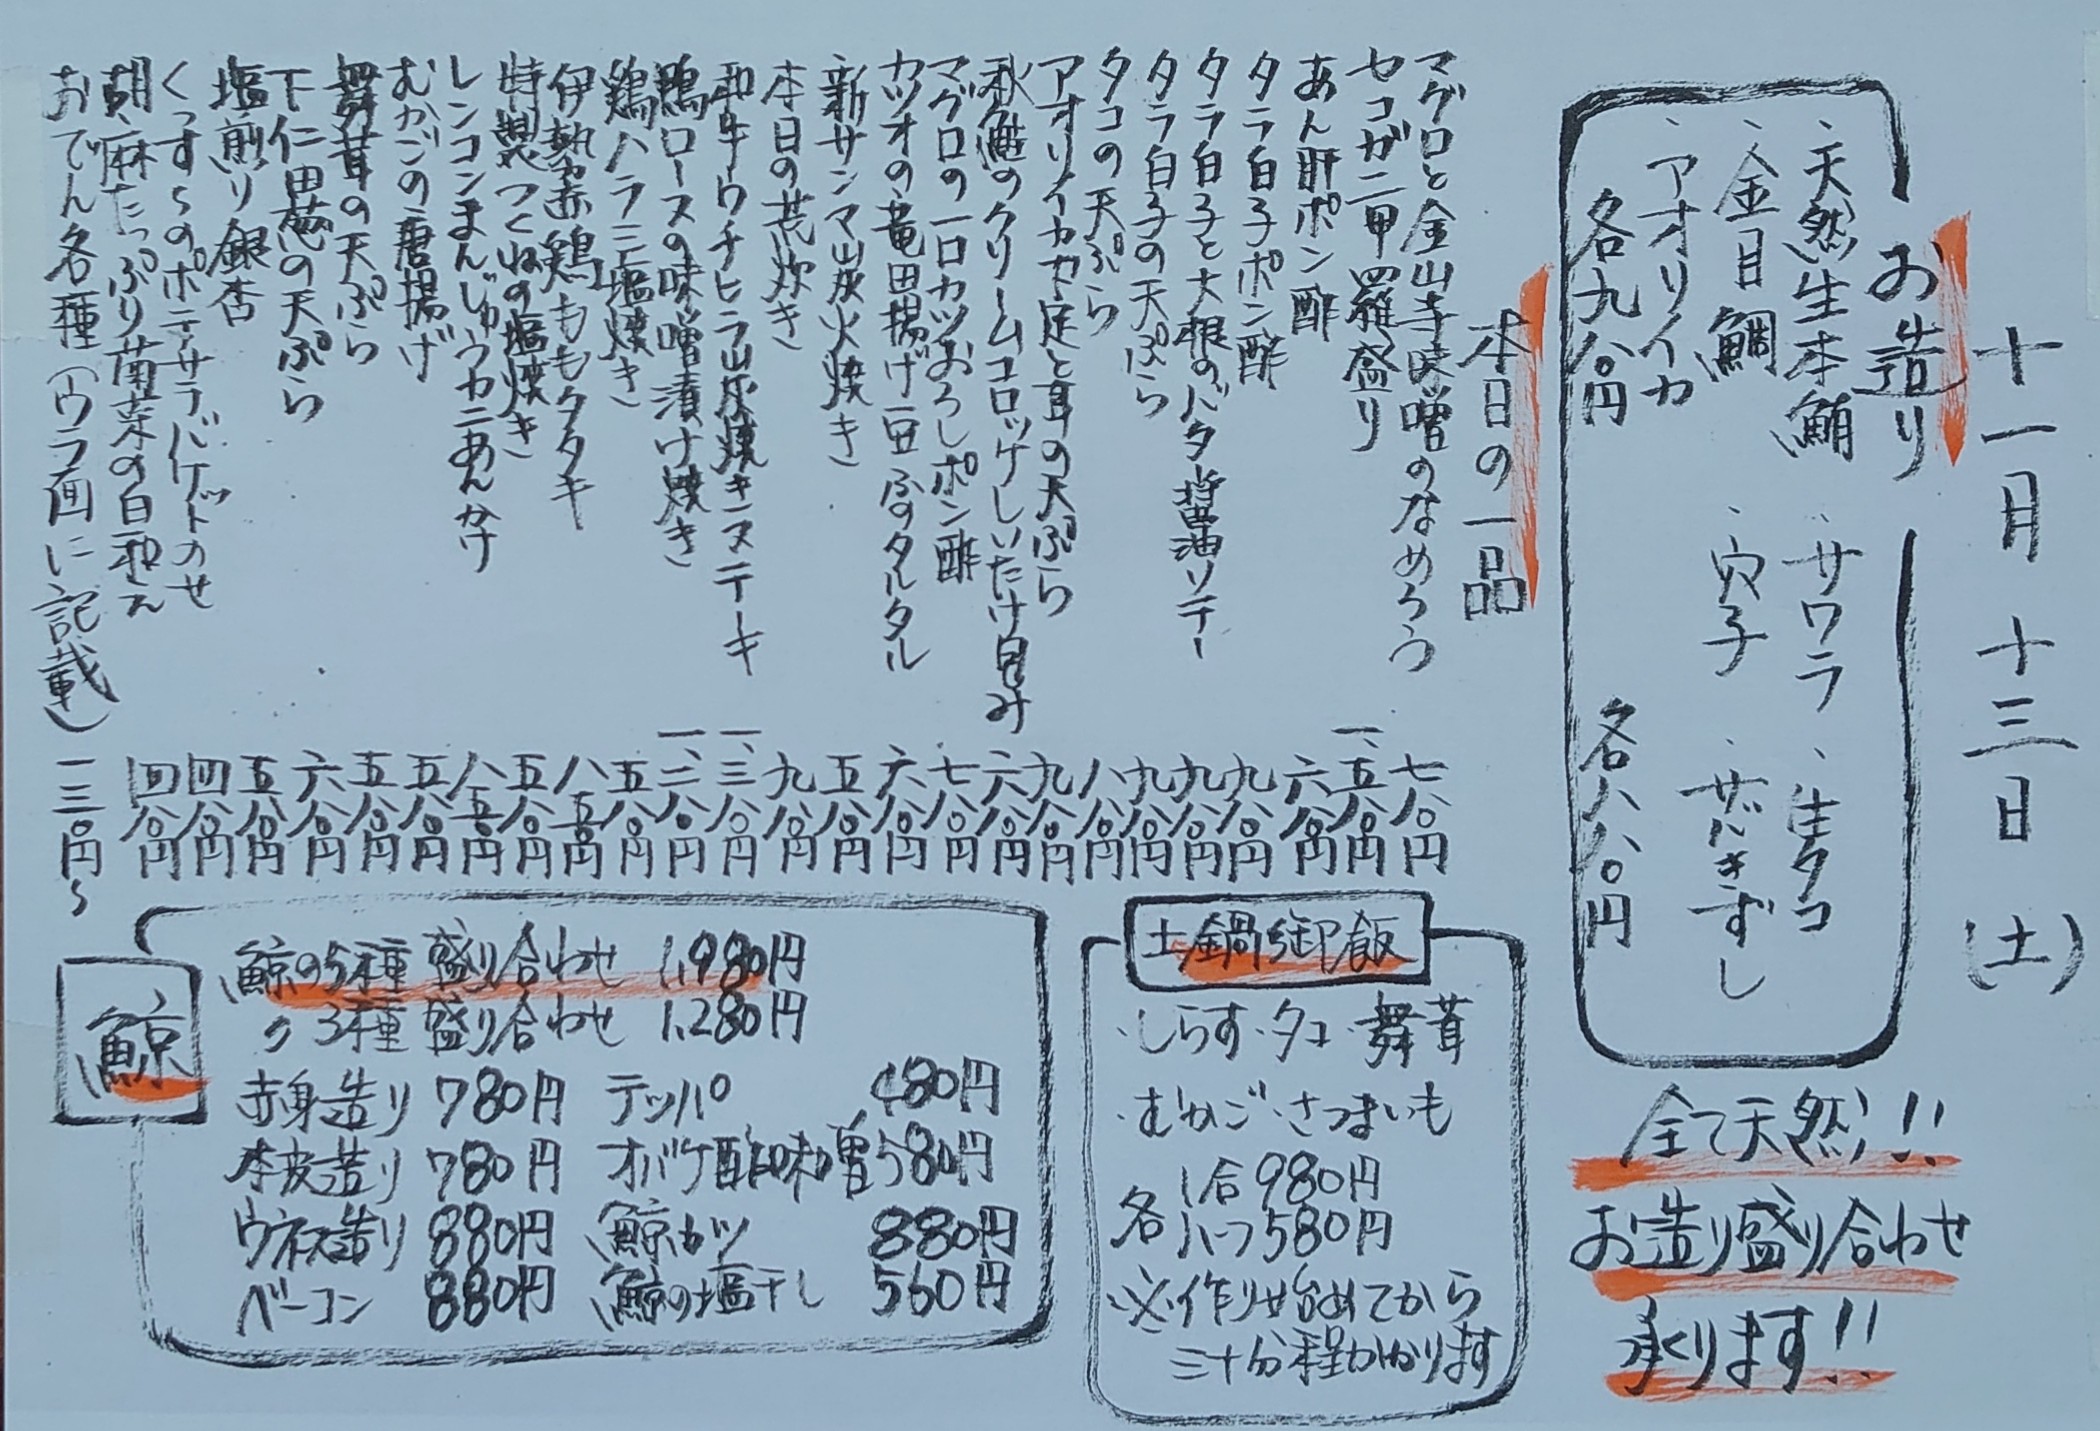 十一月十三日(土)
お造り
、天然生本鮪 、サワラ 、生タコ
、金目鯛 、穴子 、サバきずし
、アオリイカ
各九八〇円 各八八〇円
全て天然!!
お造り盛り合わせ
承ります!!
本日の一品
マグロと金山寺味噌のなめろう 七八〇円
セコガニ甲羅盛り 一、五八〇円
あん肝ポン酢 六八〇円
タラ白子ポン酢 九八〇円
タラ白子と大根のバタ醤油ソテー 九八〇円
タラ白子の天ぷら 九八〇円
タコの天ぷら 八八〇円
アオリイカゲソと耳の天ぷら 九八〇円
秋鮭のクリームコロッケしいたけ包み 六八〇円
マグロの一口カツおろしポン酢 七八〇円
カツオの竜田揚げ豆ふのタルタル 六八〇円
新サンマ炭火焼き 五八〇円
本日の荒炊き 九八〇円
和牛ウチヒラ炭焼きステーキ 一、三八〇円
鴨ロースの味噌漬け焼き 一、二八〇円
鶏ハラミ塩焼き 五八〇円
伊勢赤鶏ももタタキ 八五〇円
特製つくねの塩焼き 五八〇円
レンコンまんじゅうカニあんかけ 八五〇円
むかごの唐揚げ 五八〇円
舞茸の天ぷら 五八〇円
下仁田葱の天ぷら 六八〇円
塩煎り銀杏 五八〇円
くっす〜のポテサラバケットのせ 四八〇円
胡麻たっぷり菊菜の白和え 四八〇円
おでん各種(ウラ面に記載) 一三〇円〜
土鍋御飯
・しらす・タコ・舞茸
・むかご・さつまいも
各 1合 980円
ハーフ 580円
※作り始めてから
三十分程かかります
鯨
鯨の5種盛り合わせ 1,980円
〃 3種盛り合わせ 1,280円
赤身造り 780円 テッパ 480円
本皮造り 780円 オバケ酢味噌 580円
ウネス造り 880円 鯨カツ 880円
ベーコン 880円 鯨の塩干し 560円